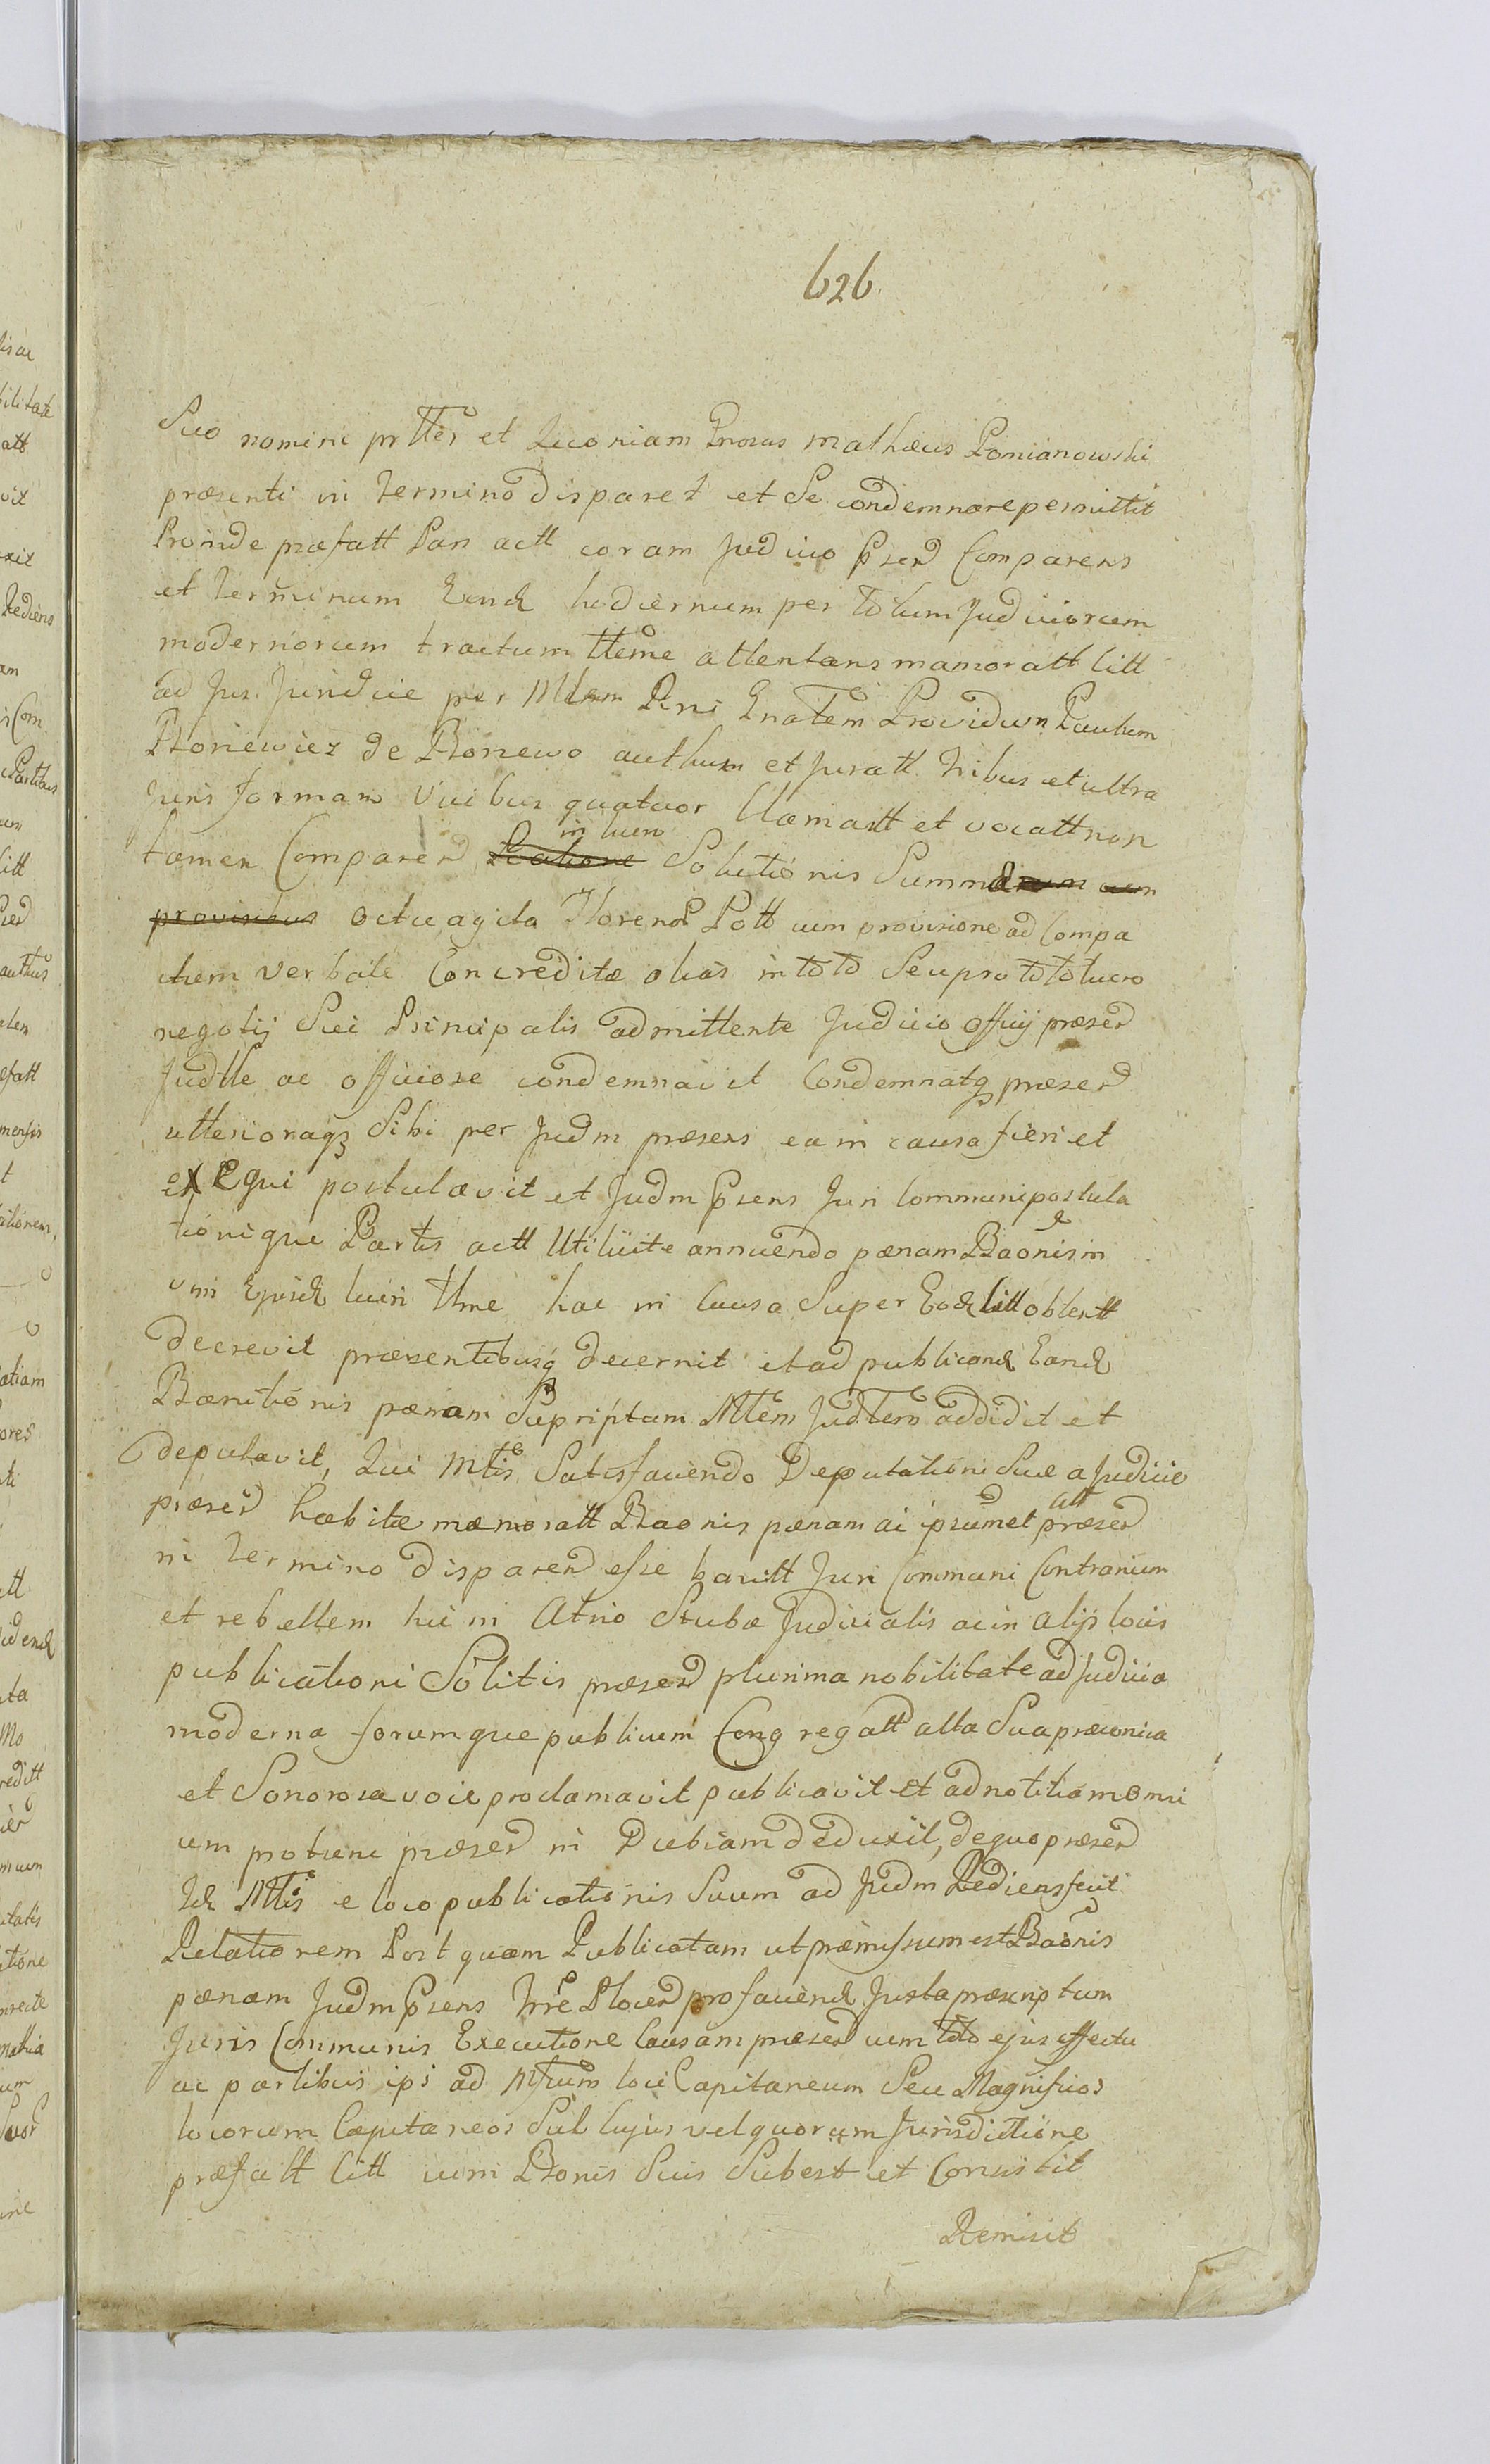 626
Suo nomine prtter et Quoniam Gnosus Mathæus Ponianowski
præsenti in Termino disparet et Se condemnare permittit
Proinde præfatt Pars actt coram Judicio Psend Comparens
et Terminum Eund hodiernum per totum Judiciorum
modernorum tractum tteme attentans mamoratt Citt
ad Jus Juridice per Mlem Regni Gnalem Providum Paulum
Boniewicz de Boniewo authum et Juratt Tribus et ultra
Juris formam Vicibus quatuor Clamatt et vocatt non
tamen Comparend Ratione in lucro Solutionis Summarum cum
provisibus Octuaginta Florenor Poll cum provisione ad Compu
tum verbale Concreditæ alias in toto Seu pro toto lucro
negotij Sui Principalis admittente Judicio Officij præsend
Judtte ac officiose condemnavit Condemnatq præsend
ulterioraq3 Sibi per Judm præsens ea in causa fieri et
exequi postulavit et Judm Psens Juri Communi postula
tionique Partis actt Utilüte annuendo pænam Baonis in
um Ejusd lucri ttme hac in Causa Super Eod Citt obtentt
decrevit præsentibusq decernit et ad publicand Eand
Banitionis pænam Supriptum Mtlem Judlem addidit et
deputavit, Qui Mtis Satisfaciendo Deputationi Suæ a Judicio
præsend habitæ memoratt Baonis pænam ac ipsumet Citt præsend
in Termino disparend esse banitt Juri Communi Contrarium
et rebellem hic in Atrio Stubæ Judicialis ac in alijs locis
publicationi Solitis præsend plurima nobilitate ad Judicia
moderna forumque publicum Congregatt alta Sua præconica
et Sonorosa voce proclamavit publicavit et ad notitiam omni
um protune præsend in Dubiam deduxit, de quo præsend
Id Mtis e loco publicationis Suum ad Judm Rediens fecit
Relationem Post quam Publicatam ut præmissum est Baonis
pænam Judm Psens Trre Plocen pro faciend Juxta præscriptum
Juris Communis Executione Causam præsend cum toto ejus effectu
ac partibus ipsi ad Mficum loci Capitaneum Seu Magnificos
locorum Capitaneos Sub Cujus vel quorum Jurisdictione
præfatt Citt cum Bonis Suis Subest et Consistit
Remisit